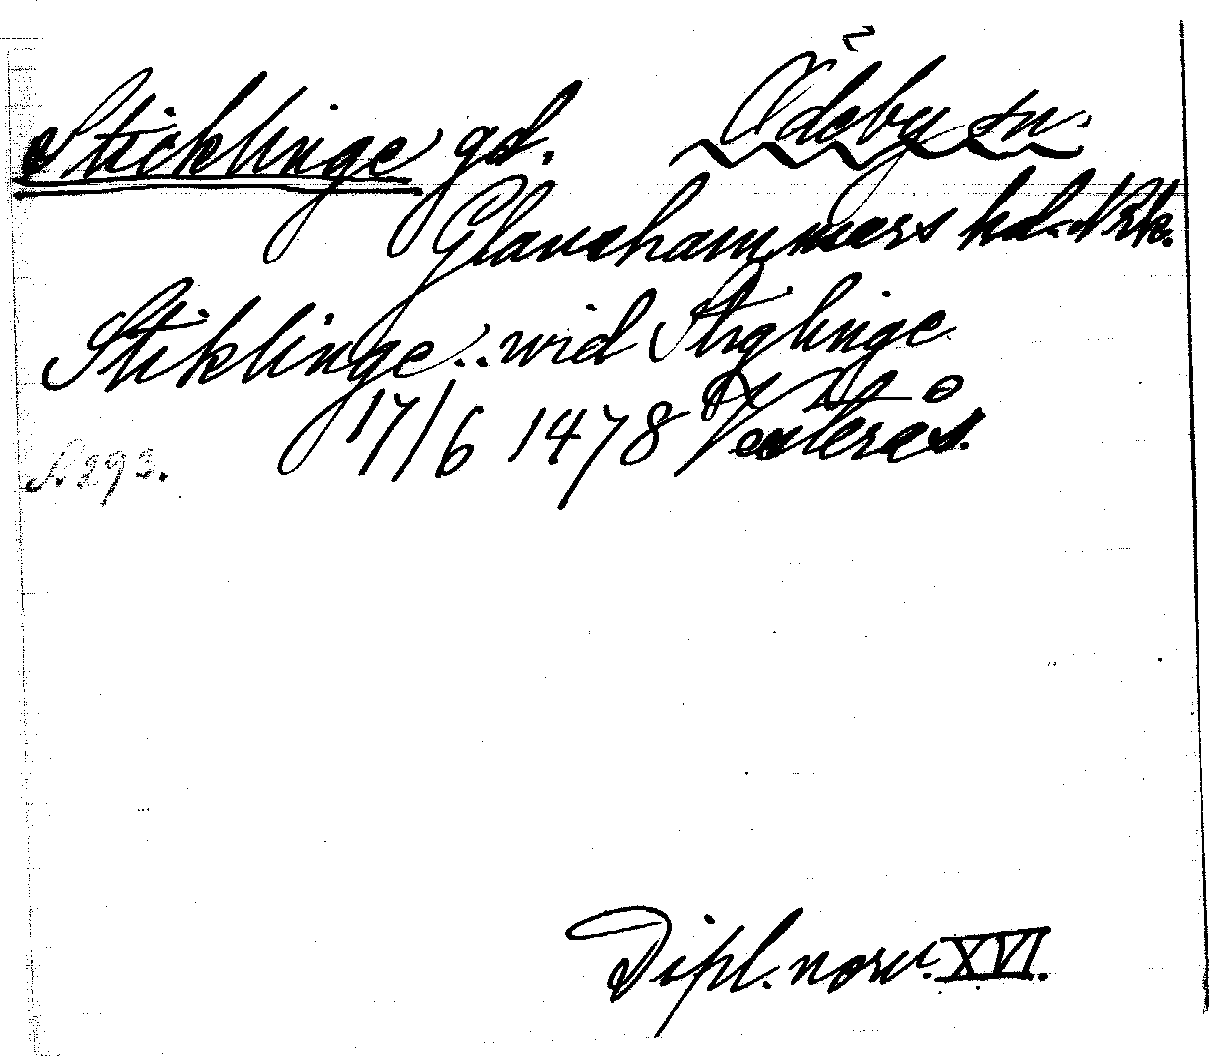 Sticklinge gd. Ödeby sn.
Glanshammers hd. Nrk.
Stiklinge .. wid Strylinge
17/6 1478 Vesterås.
S. 293.
Dipl. norv. XVI.